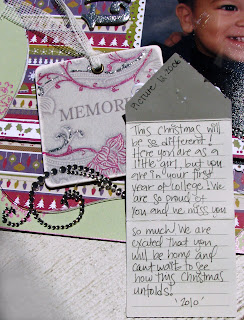 MEMOR
Picture is 2002
This Christmas will
be so different!
Here you are as a
little girl, but you
are in your first
year of college! We
are so proud of
you and we miss you
so much! We are
excited that you
will be home and
can't wait to see
how this Christmas
unfolds!
'2010'